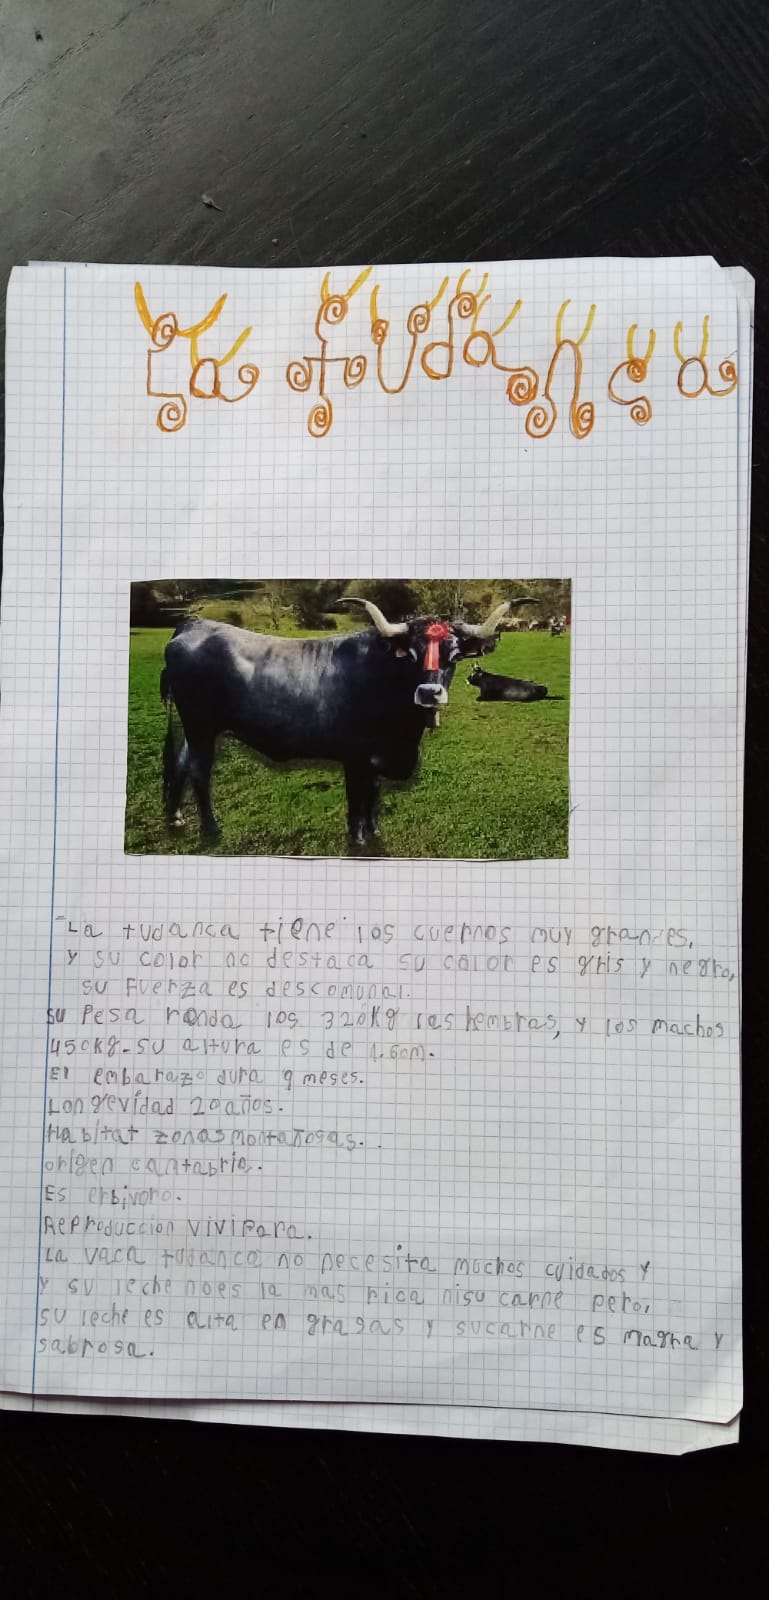 La tudanca
La tudanca tiene los cuernos muy grandes,
y su color no destaca su color es gris y negro,
su fuerza es descomunal.
su Pesa ronda los 320Kg las hembras, y los machos
450Kg-su altura es de 1.60m.
El embarazo dura 9 meses.
Longevidad 20años.
Habitat zonas montañosas.
origen cantabria.
Es erbivoro.
Reproduccion vivipara.
La vaca tudanca no necesita muchos cuidados y
y su leche noes la mas rica nisu carne pero,
su leche es alta en grasas y sucarne es magra y
sabrosa.